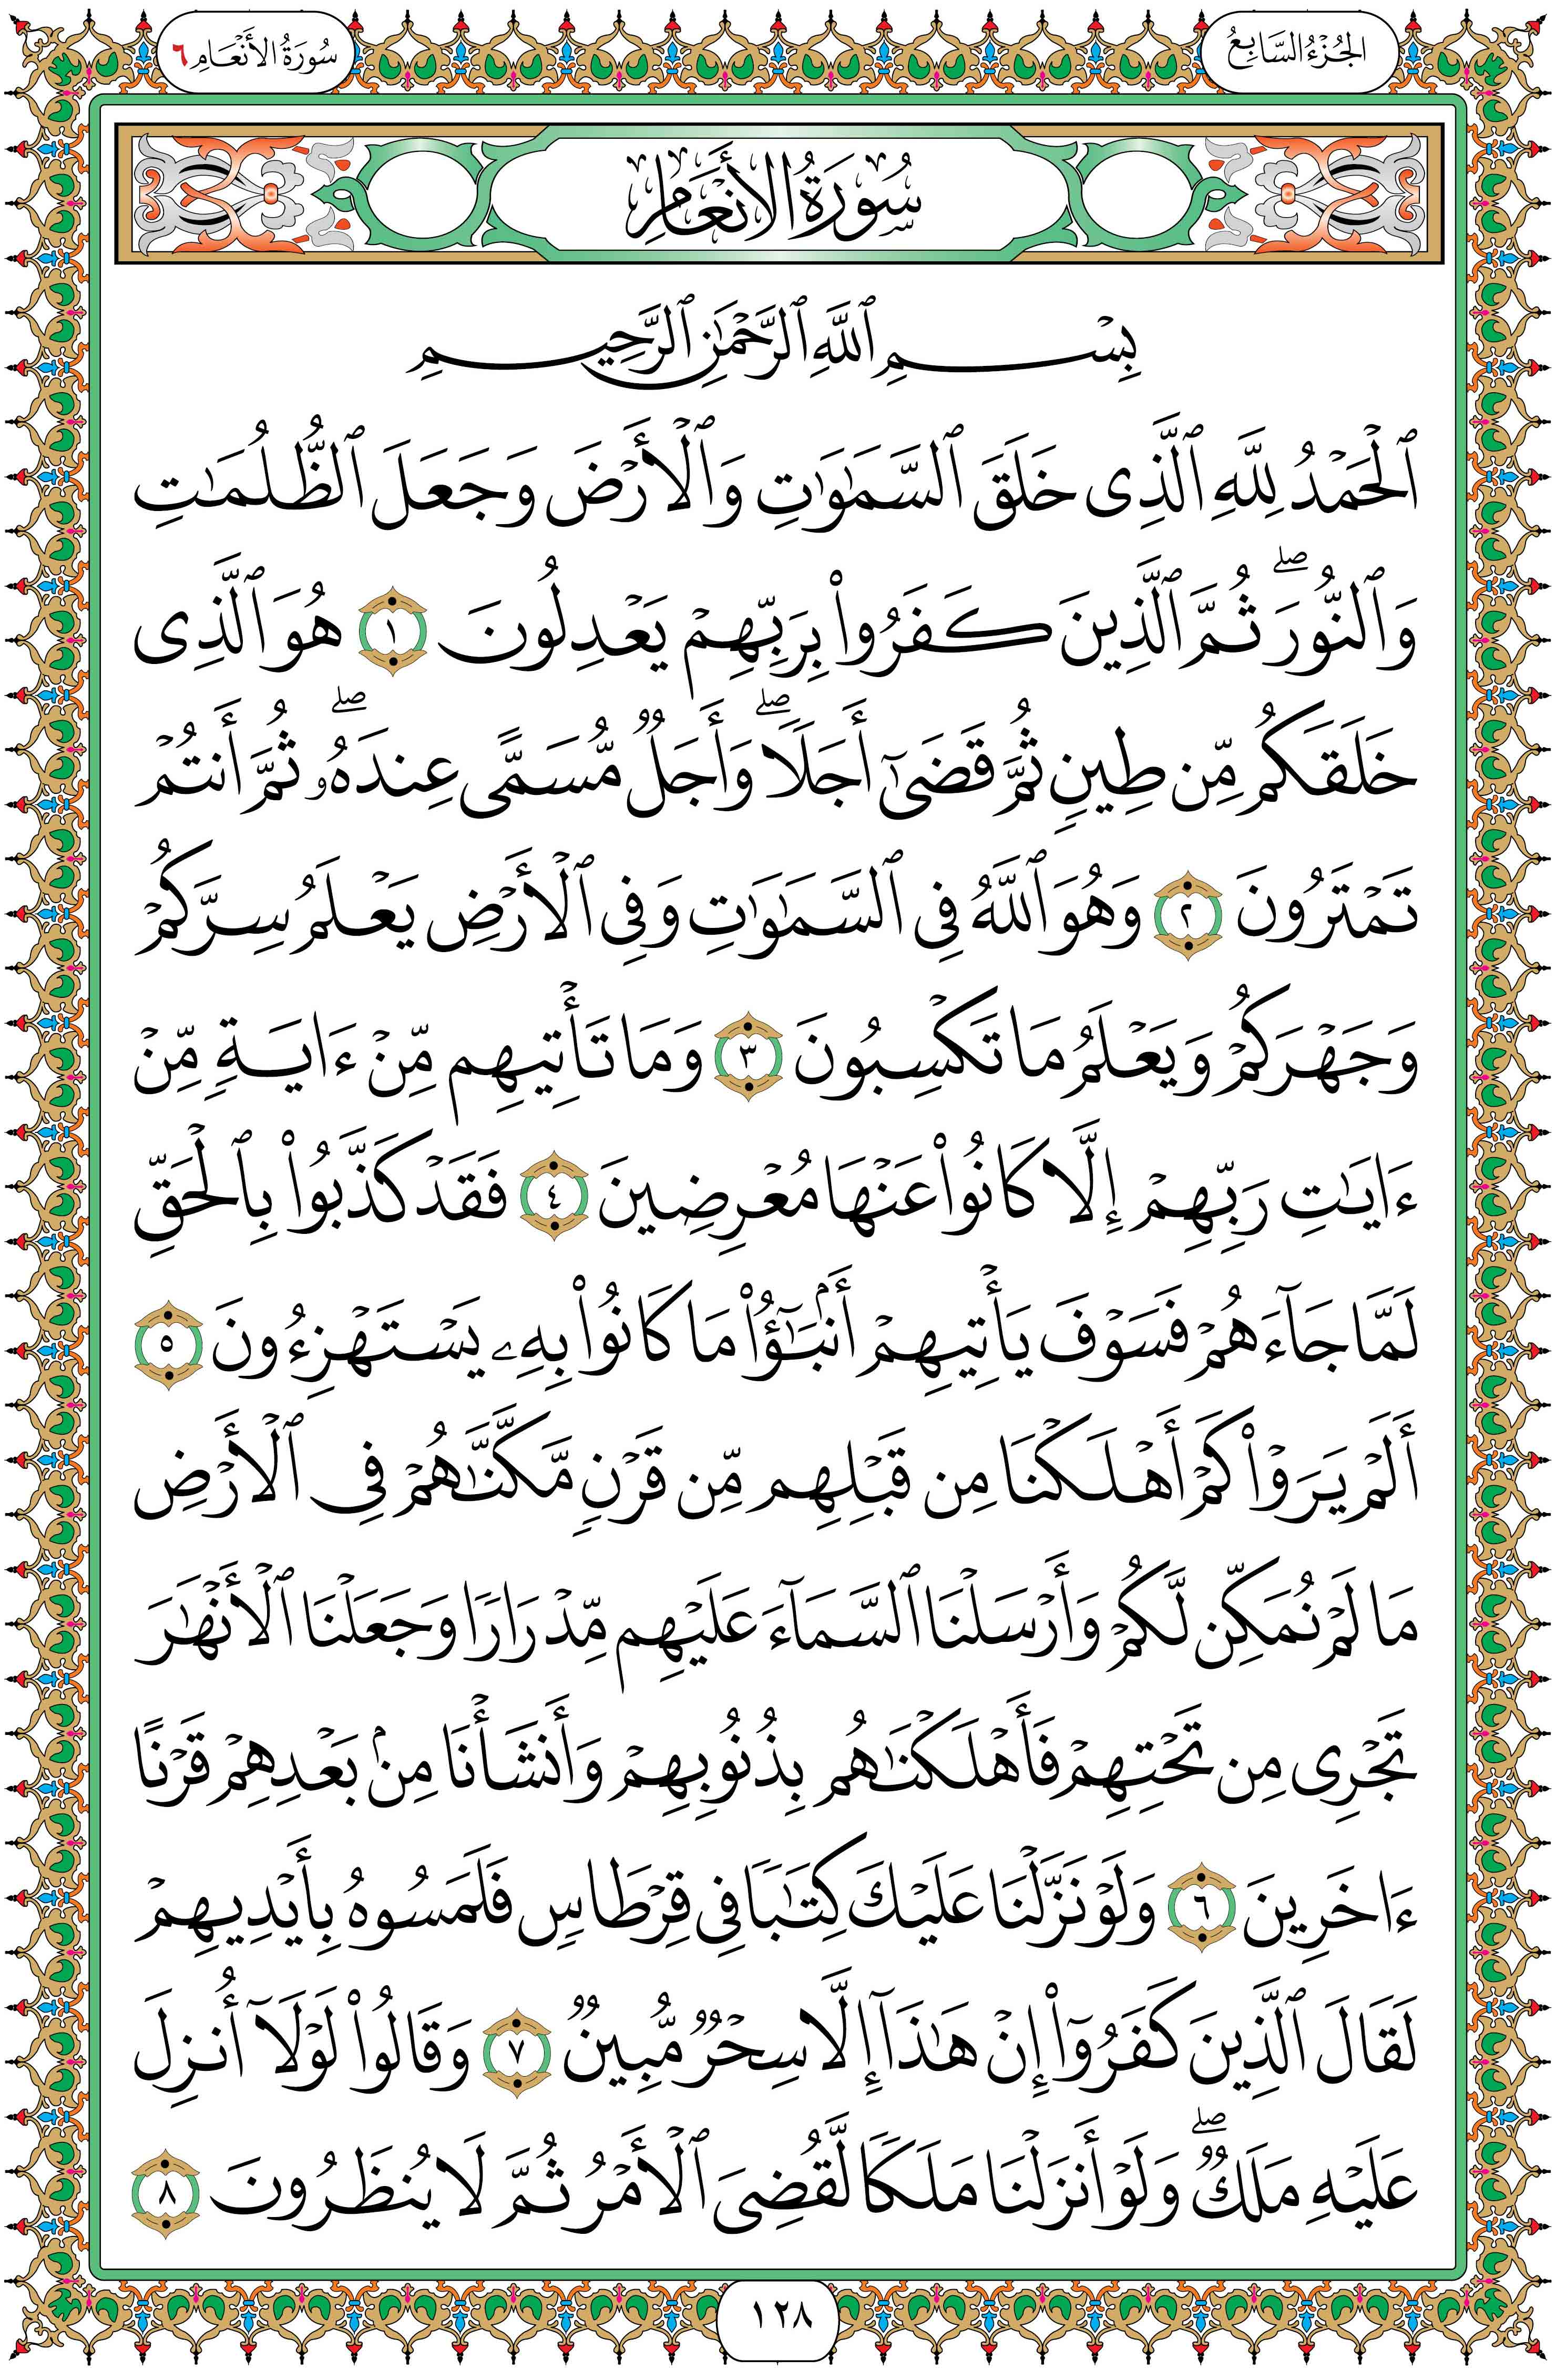 الجُزْءُ السَّابِعُ
سُورَةُ الأَنْعَامِ ٦
سُورَةُ الأَنْعَامِ
بِسْمِ ٱللَّهِ ٱلرَّحْمَٰنِ ٱلرَّحِيمِ
ٱلْحَمْدُ لِلَّهِ ٱلَّذِى خَلَقَ ٱلسَّمَٰوَٰتِ وَٱلْأَرْضَ وَجَعَلَ ٱلظُّلُمَٰتِ
وَٱلنُّورَ ۖ ثُمَّ ٱلَّذِينَ كَفَرُوا۟ بِرَبِّهِمْ يَعْدِلُونَ ١ هُوَ ٱلَّذِى
خَلَقَكُم مِّن طِينٍ ثُمَّ قَضَىٰٓ أَجَلًا ۖ وَأَجَلٌ مُّسَمًّى عِندَهُۥ ۖ ثُمَّ أَنتُمْ
تَمْتَرُونَ ٢ وَهُوَ ٱللَّهُ فِى ٱلسَّمَٰوَٰتِ وَفِى ٱلْأَرْضِ يَعْلَمُ سِرَّكُمْ
وَجَهْرَكُمْ وَيَعْلَمُ مَا تَكْسِبُونَ ٣ وَمَا تَأْتِيهِم مِّنْ ءَايَةٍ مِّنْ
ءَايَٰتِ رَبِّهِمْ إِلَّا كَانُوا۟ عَنْهَا مُعْرِضِينَ ٤ فَقَدْ كَذَّبُوا۟ بِٱلْحَقِّ
لَمَّا جَآءَهُمْ فَسَوْفَ يَأْتِيهِمْ أَنۢبَٰٓؤُا۟ مَا كَانُوا۟ بِهِۦ يَسْتَهْزِءُونَ ٥
أَلَمْ يَرَوْا۟ كَمْ أَهْلَكْنَا مِن قَبْلِهِم مِّن قَرْنٍ مَّكَّنَّٰهُمْ فِى ٱلْأَرْضِ
مَا لَمْ نُمَكِّن لَّكُمْ وَأَرْسَلْنَا ٱلسَّمَآءَ عَلَيْهِم مِّدْرَارًا وَجَعَلْنَا ٱلْأَنْهَٰرَ
تَجْرِى مِن تَحْتِهِمْ فَأَهْلَكْنَٰهُم بِذُنُوبِهِمْ وَأَنشَأْنَا مِنۢ بَعْدِهِمْ قَرْنًا
ءَاخَرِينَ ٦ وَلَوْ نَزَّلْنَا عَلَيْكَ كِتَٰبًا فِى قِرْطَاسٍ فَلَمَسُوهُ بِأَيْدِيهِمْ
لَقَالَ ٱلَّذِينَ كَفَرُوٓا۟ إِنْ هَٰذَآ إِلَّا سِحْرٌ مُّبِينٌ ٧ وَقَالُوا۟ لَوْلَآ أُنزِلَ
عَلَيْهِ مَلَكٌ ۖ وَلَوْ أَنزَلْنَا مَلَكًا لَّقُضِىَ ٱلْأَمْرُ ثُمَّ لَا يُنظَرُونَ ٨
١٢٨